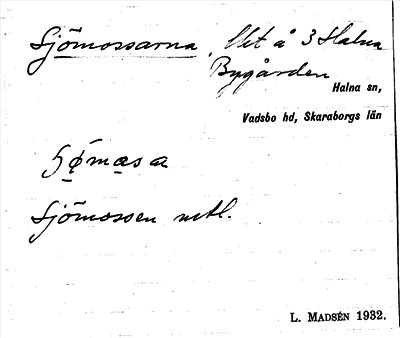 Sjömossarna, Utt å 3 Halna
Bygården
Halna sn,
Vadsbo hd, Skaraborgs län
Sjömossen
L. MADSÉN 1932.